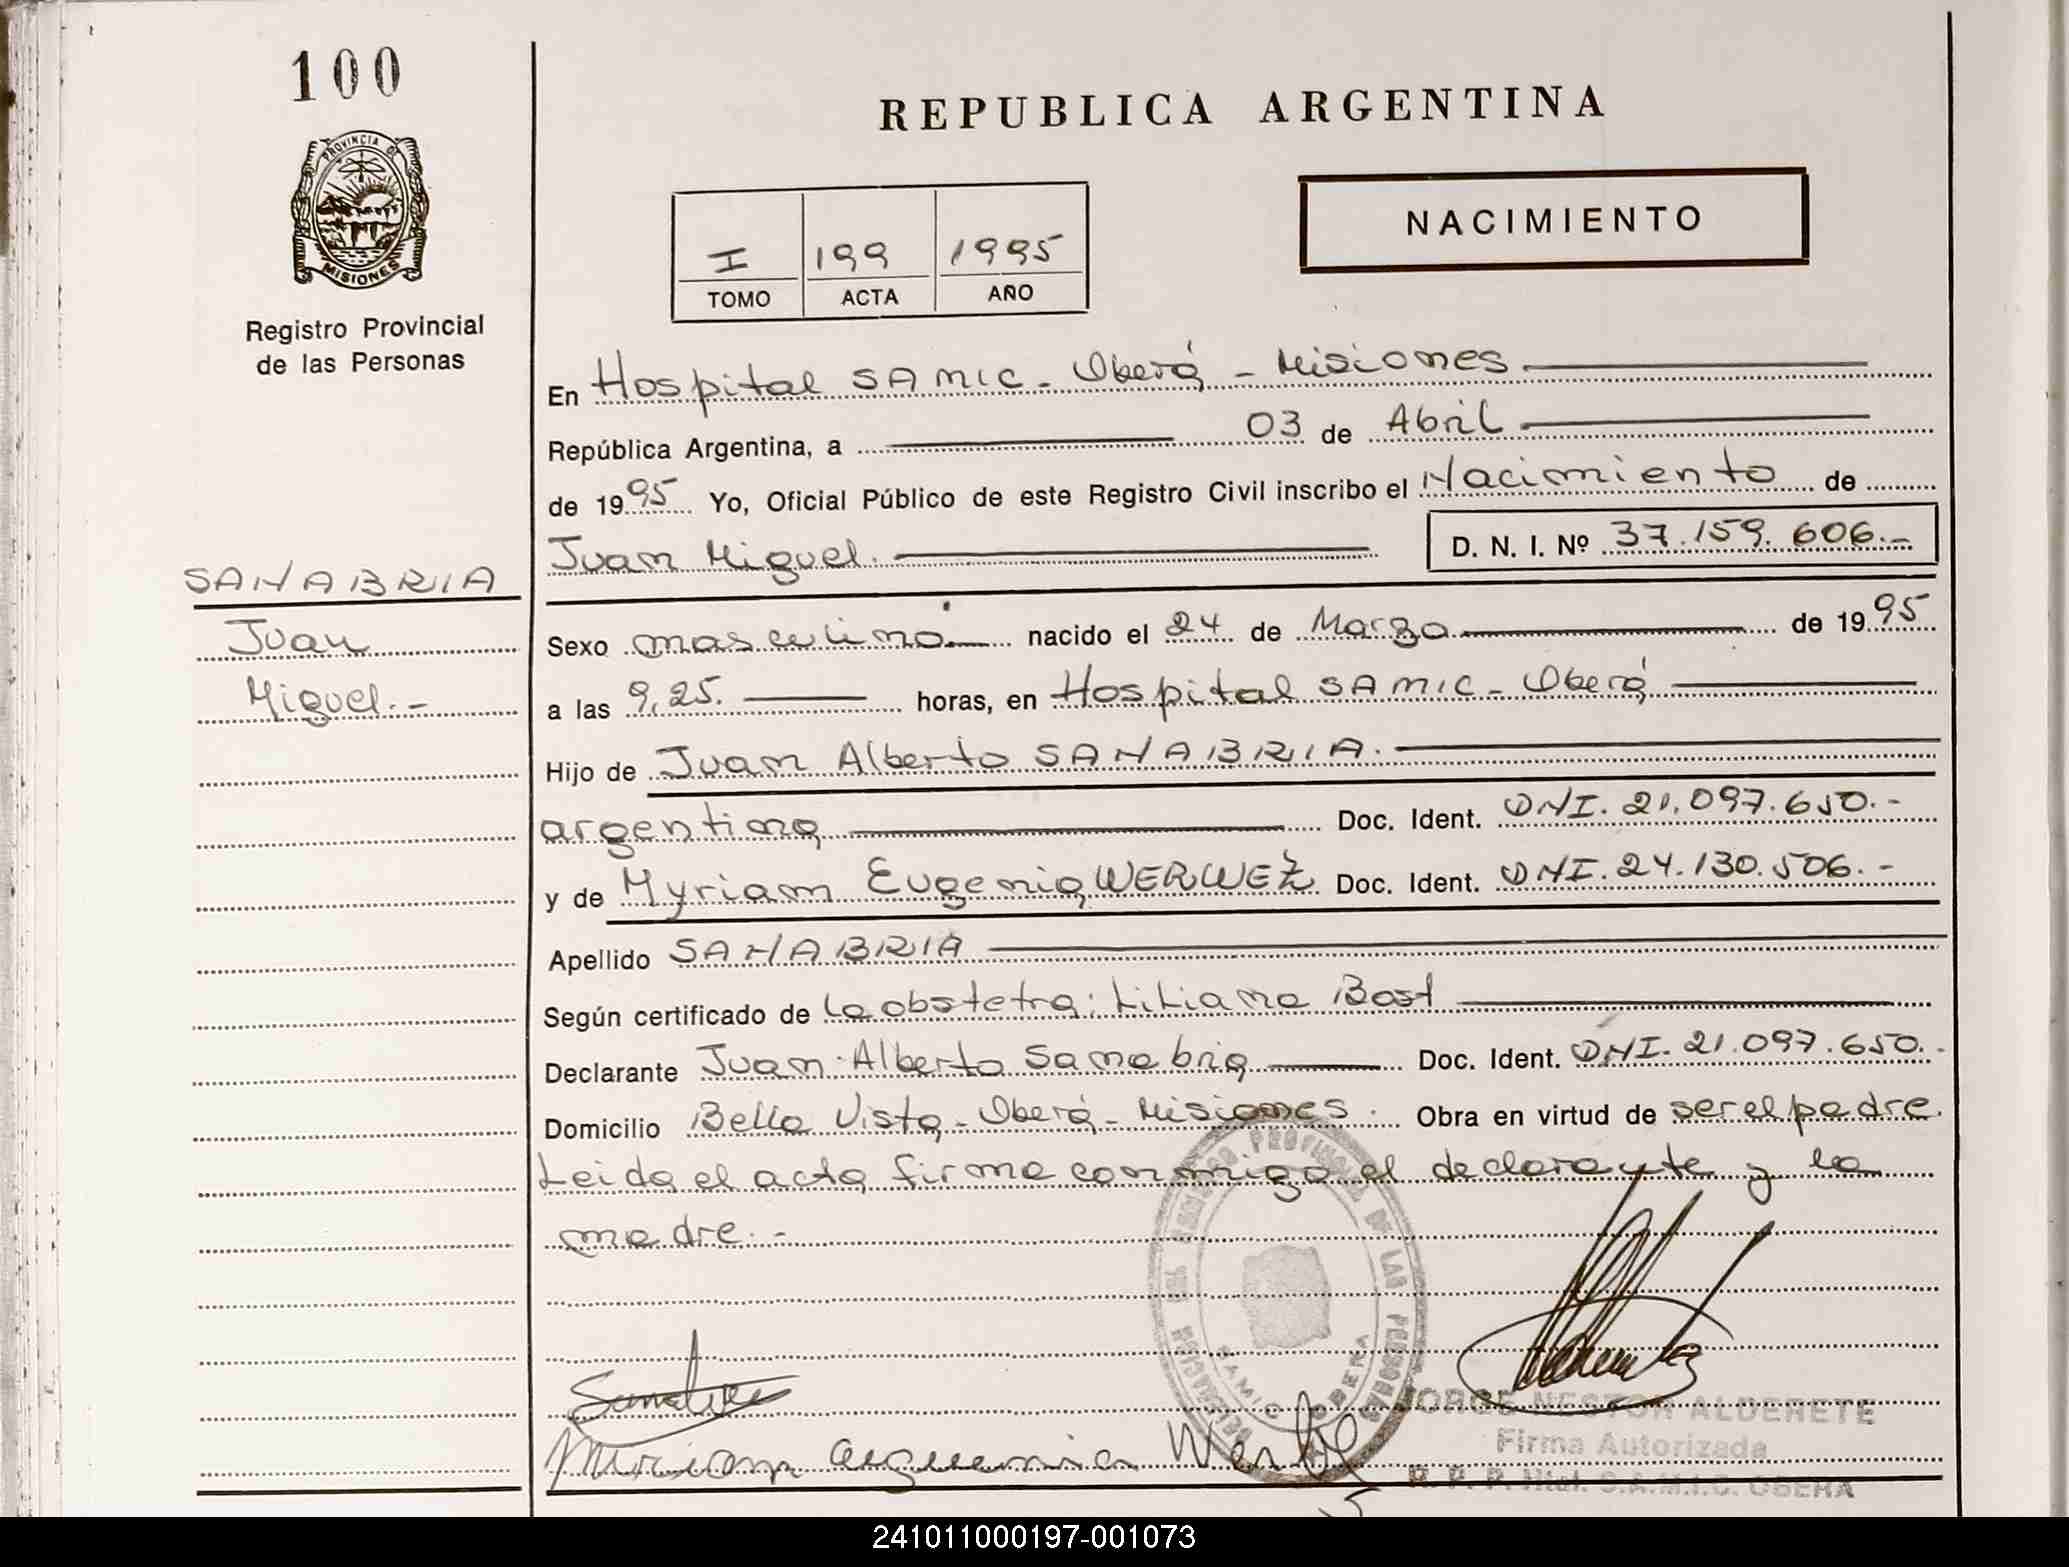 100
PROVINCIA DE
MISIONES
Registro Provincial
de las Personas
SANABRIA
Juan
Miguel.-
REPUBLICA ARGENTINA
I 199 1995
TOMO ACTA AÑO
NACIMIENTO
En Hospital SAMIC - Oberá - Misiones
República Argentina, a 03 de Abril
de 1995 Yo, Oficial Público de este Registro Civil inscribo el Nacimiento de
Juan Miguel. D. N. I. Nº 37.159.606.-
Sexo masculino nacido el 24 de Marzo de 1995
a las 9,25. horas, en Hospital SAMIC - Oberá
Hijo de Juan Alberto SANABRIA.
argentino Doc. Ident. DNI. 21.097.650.-
y de Myriam Eugenia WERWEZ Doc. Ident. DNI. 24.130.506.-
Apellido SANABRIA
Según certificado de la obstetra: Liliana Bast
Declarante Juan Alberto Sanabria Doc. Ident. DNI. 21.097.650.-
Domicilio Bella Vista - Oberá - Misiones. Obra en virtud de ser el padre.
Leida el acta firma conmigo el declarante y la
madre.-
DELEGACION DEL REGISTRO PROVINCIAL DE LAS PERSONAS
SAMIC OBERA
JORGE NESTOR ALDERETE
Firma Autorizada
R. P. P. Htal. S.A.M.I.C. OBERA
241011000197-001073